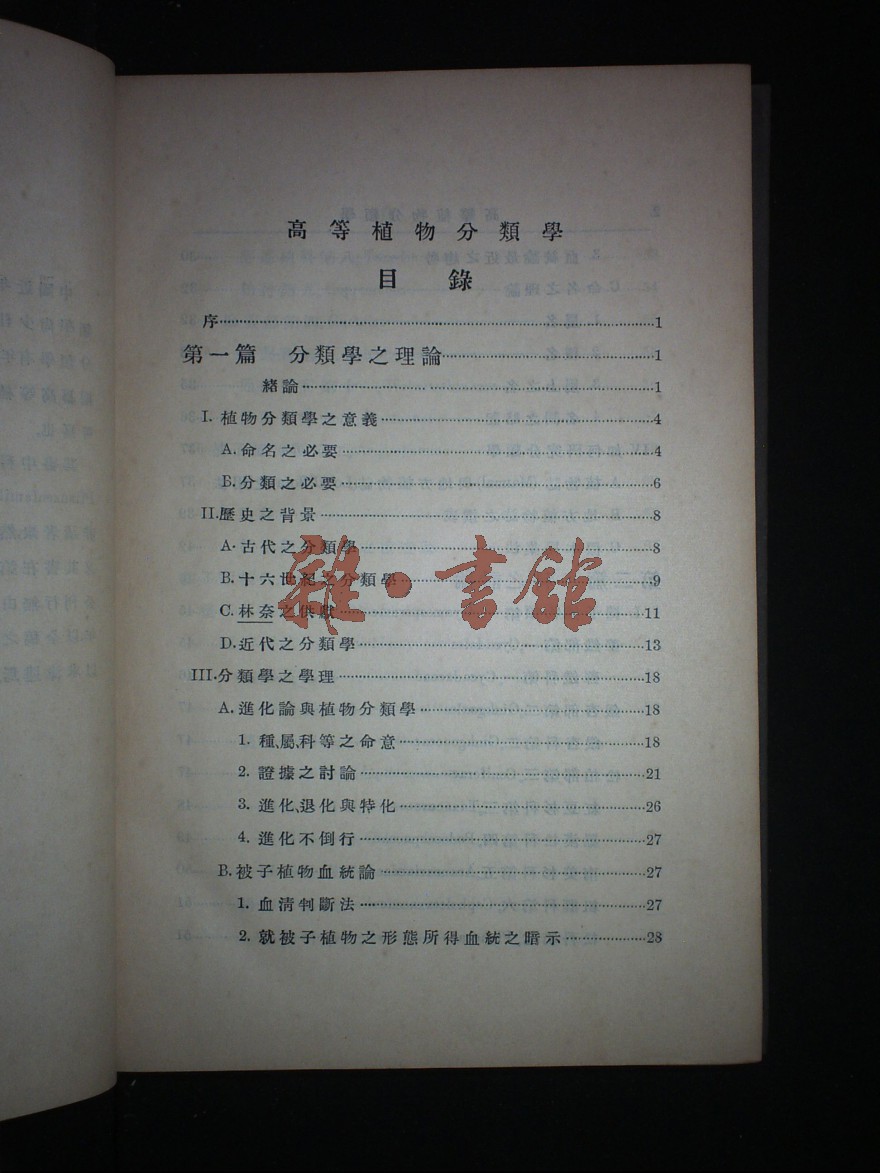 高等植物分類學
目錄
序……1
第一篇 分類學之理論……1
緒論……1
I. 植物分類學之意義……4
A. 命名之必要……4
B. 分類之必要……6
II. 歷史之背景……8
A. 古代之分類學……8
B. 十六世紀之分類學……9
C. 林奈之供獻……11
D. 近代之分類學……13
III. 分類學之學理……18
A. 進化論與植物分類學……18
1. 種、屬、科等之命意……18
2. 證據之討論……21
3. 進化、退化與特化……26
4. 進化不倒行……27
B. 被子植物血統論……27
1. 血清判斷法……27
2. 就被子植物之形態所得血統之暗示……28
雜·書館